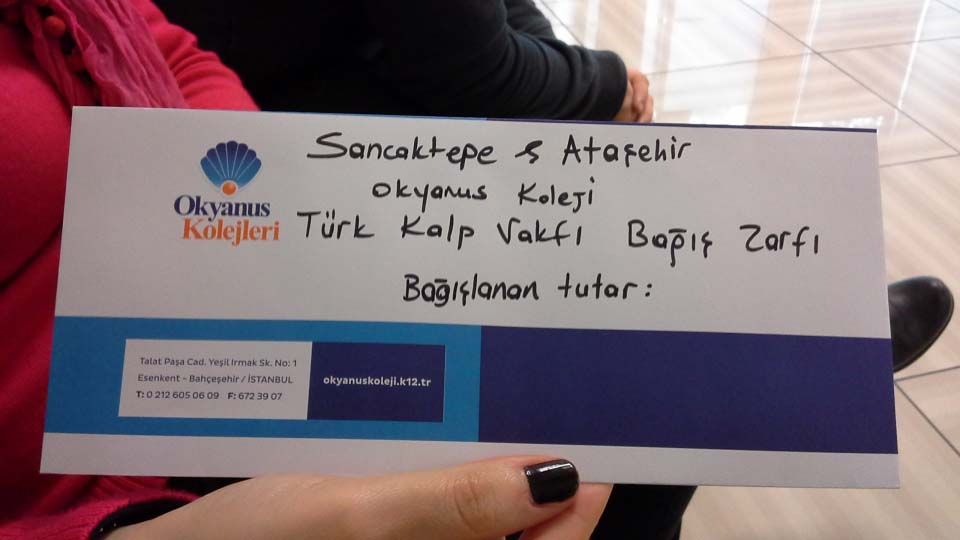 Okyanus
Kolejleri
Sancaktepe & Ataşehir
Okyanus Koleji
Türk Kalp Vakfı Bağış Zarfı
Bağışlanan tutar:
Talat Paşa Cad. Yeşil Irmak Sk. No: 1
Esenkent - Bahçeşehir / İSTANBUL
T: 0 212 605 06 09 F: 672 39 07
okyanuskoleji.k12.tr